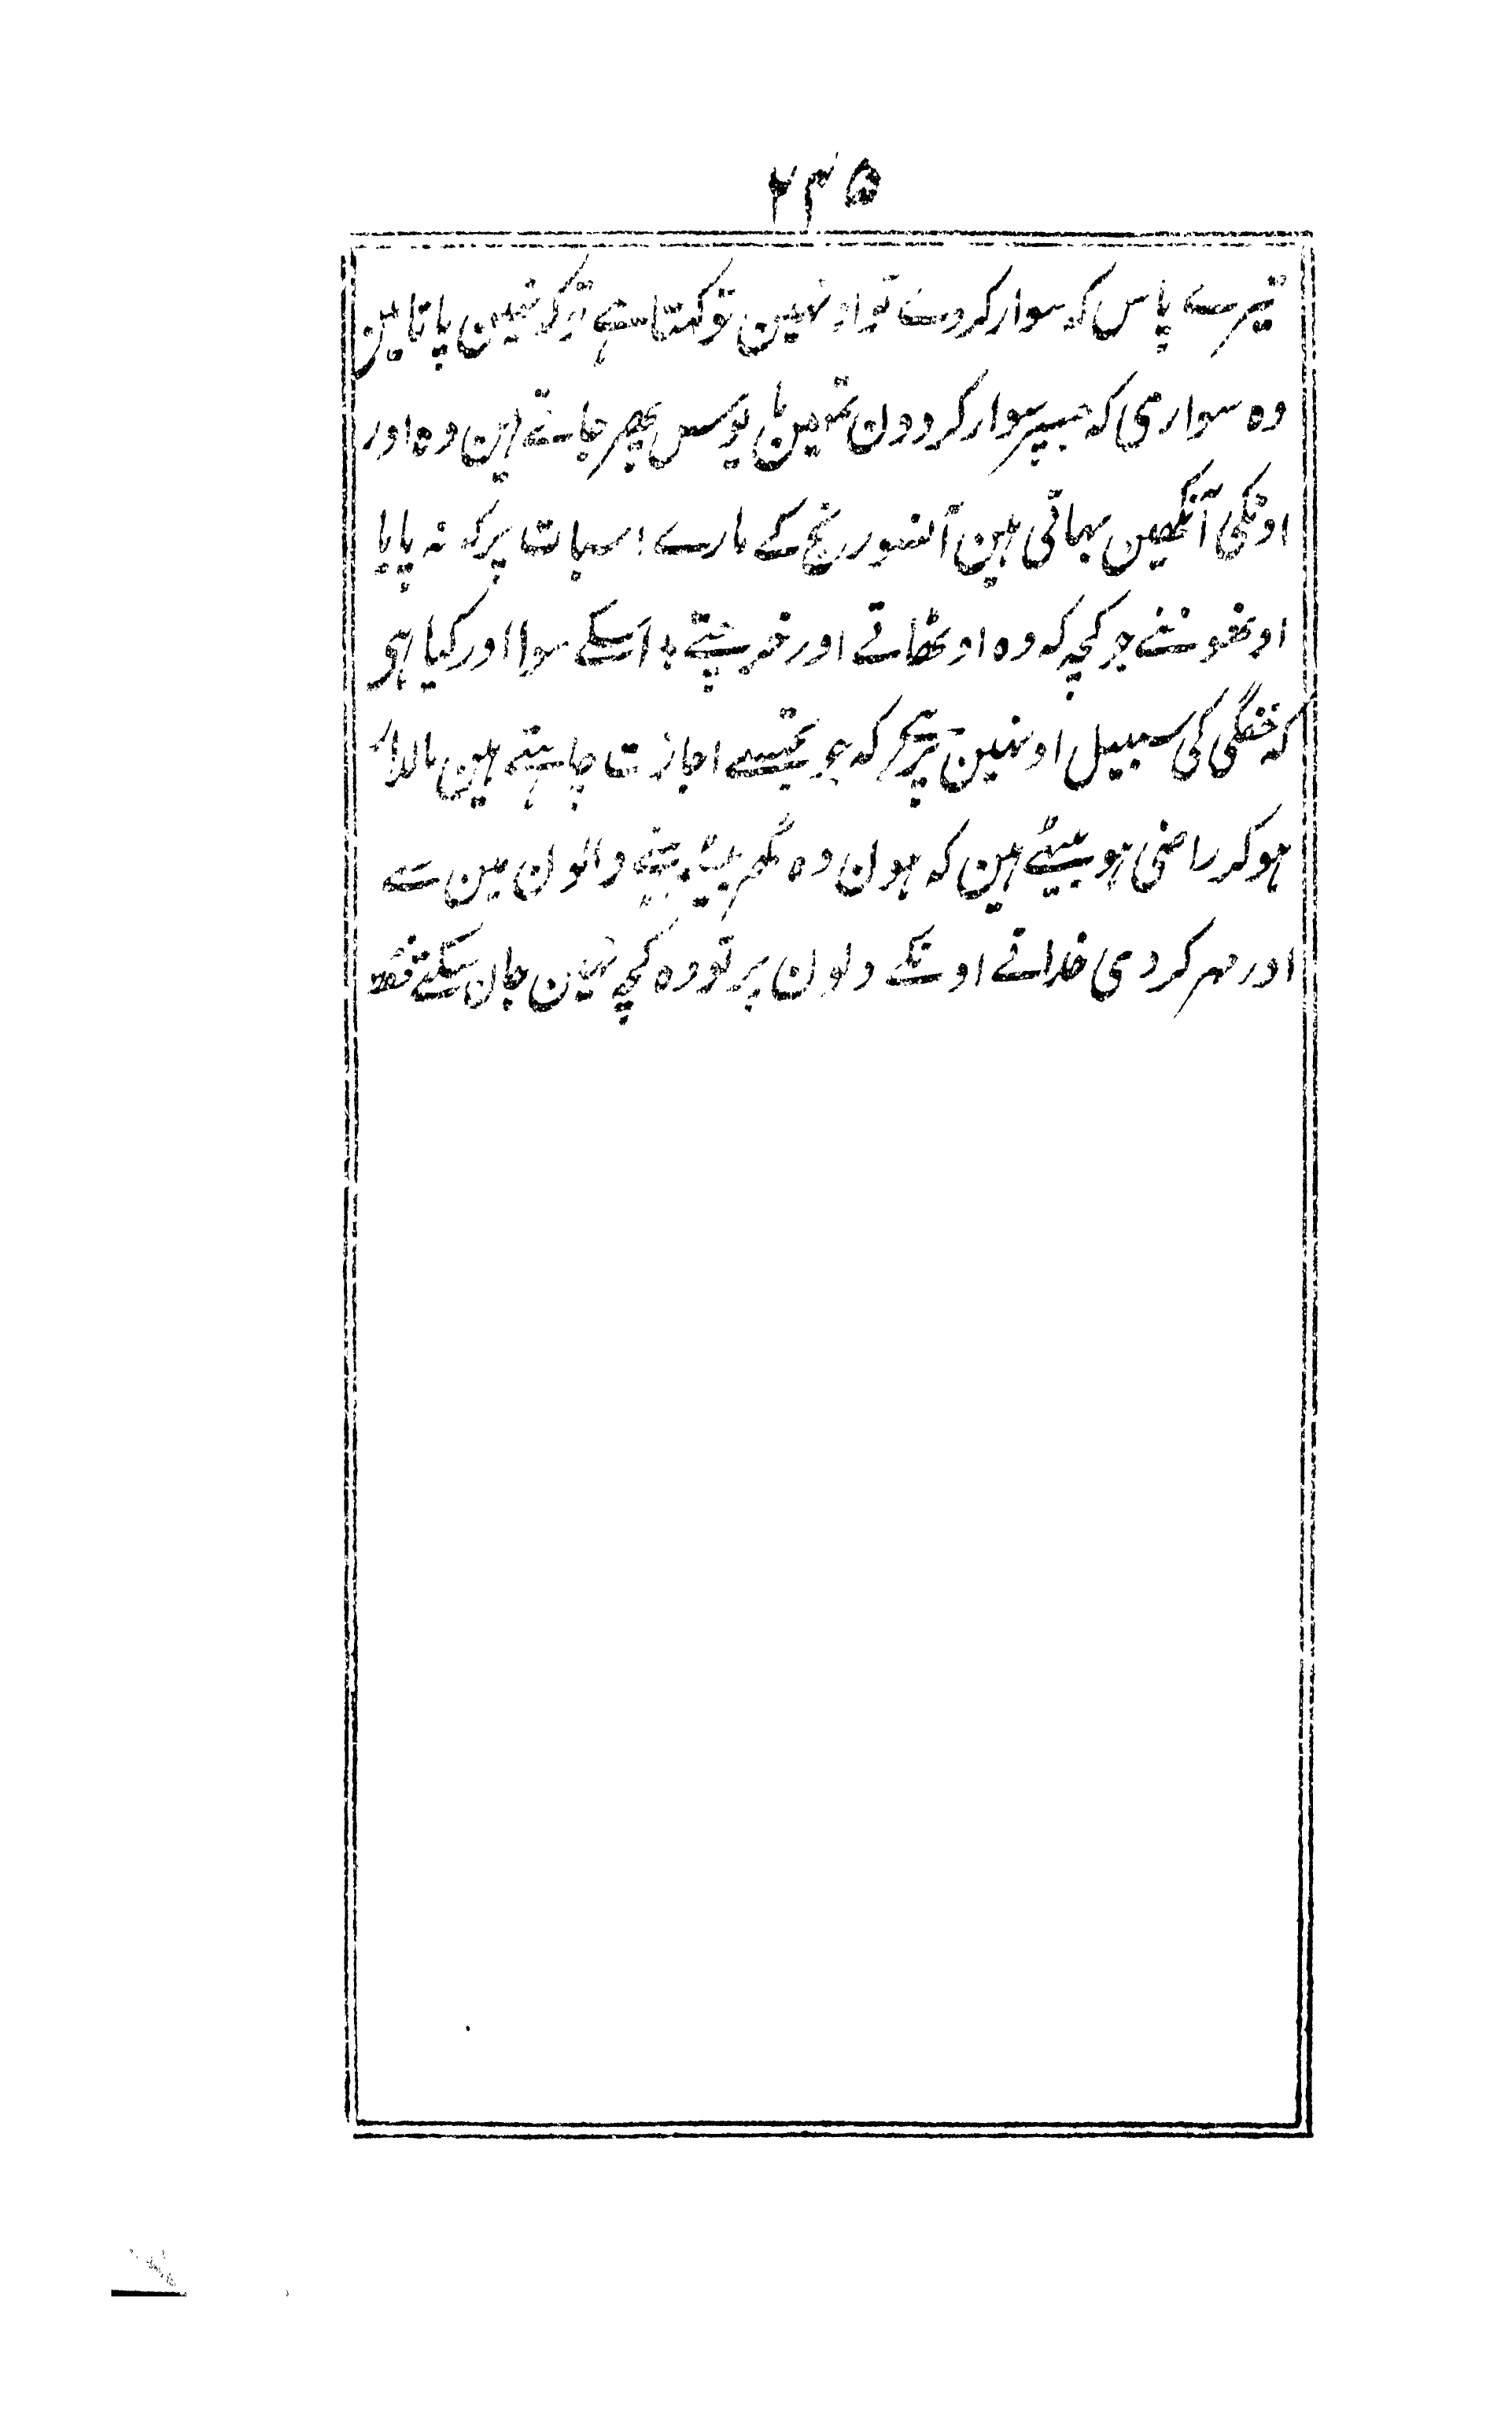 ۲۴۵
تیرے پاس کہ سوار کردے تو اونہین تو کہتا ہے کہ نہین پاتا مین
وہ سواری کہ جسپر سوار کردون تمہین مایوس پھر جاتے ہین وہ اور
اونکی آنکھین بہاتی ہین آنسو رنج کے مارے اسبات پر کہ نہ پایا
اونھوننے جو کچہ کہ وہ اوٹھاتے اور خرچتے ہ اسکے سوا اور کیا ہی
کہ خفگی کی سبیل اونہین پر ہے کہ جو تجھسے اجازت چاہتے ہین مالدار
ہوکر راضی ہو بیٹھے ہین کہ ہون وہ گھر بیٹھنے والون مین سے
اور مہر کردی خدانے اونکے دلون پر تو وہ کچہ نہین جان سکتے فقط